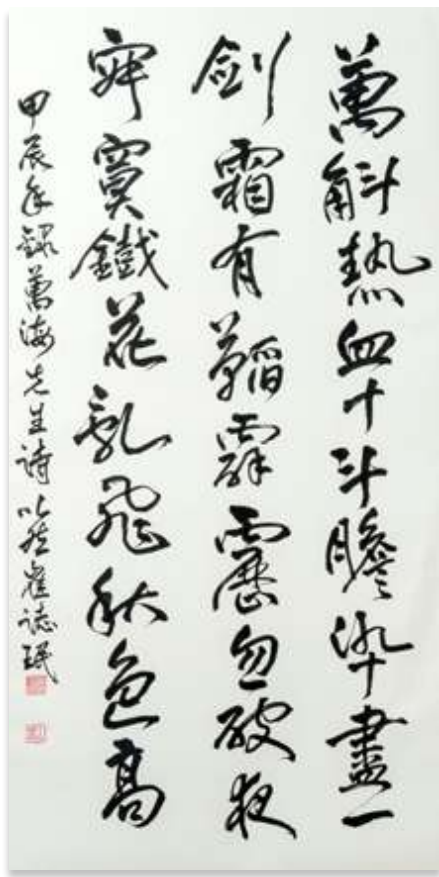 萬斛熱血十斗膽淬盡一
劍霜有鞱霹靂忽破夜
寂寞鐵花亂飛秋色高
甲辰年錄萬海先生詩 以 崔誌珉